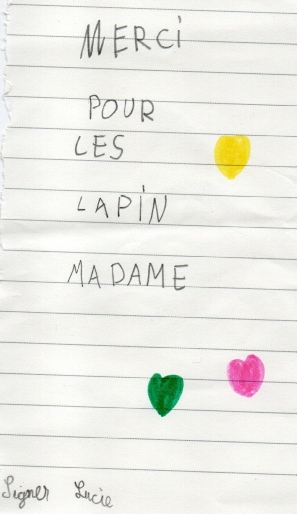 MERCi
POUR
LES
LAPiN
MADAME
Signer Lucie